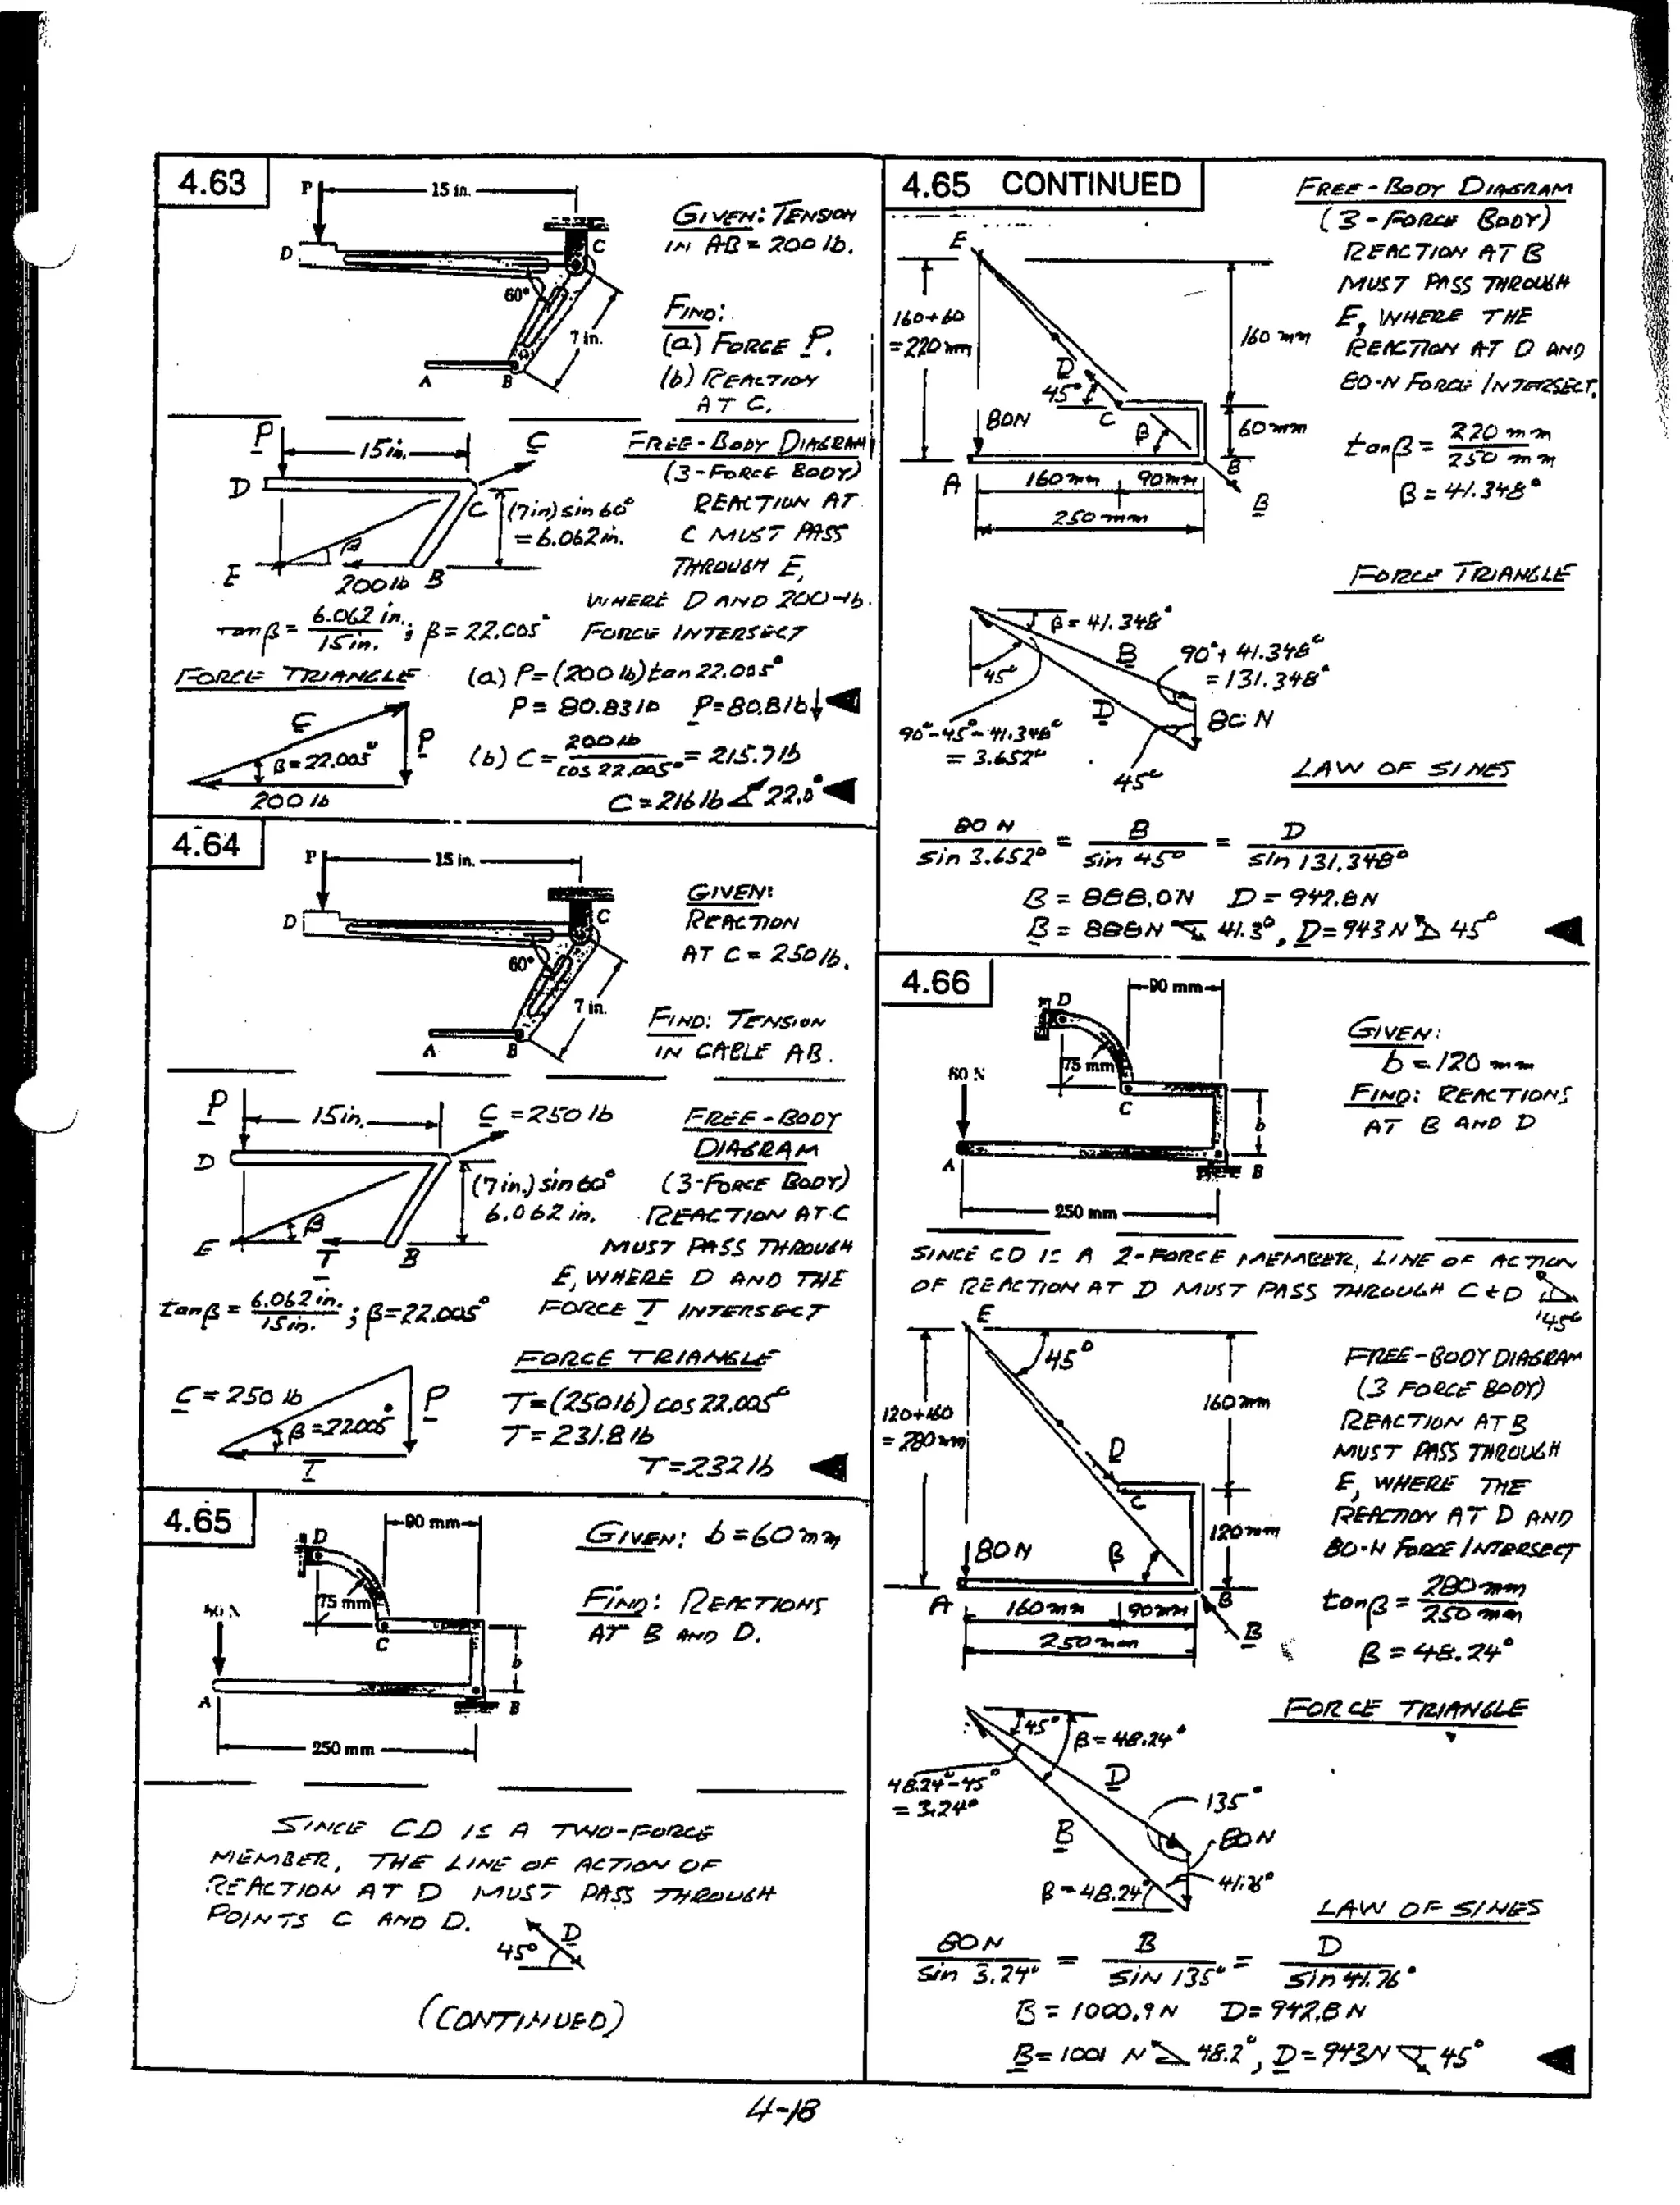 4.63
P
15 in.
D
C
60°
7 in.
A
B
GIVEN: TENSION
IN AB = 200 lb.
FIND:
(a) FORCE P.
(b) REACTION
AT C.
P
15in.
C
D
C
(7in)sin60°
=6.062in.
β
E
200lb
B
FREE-BODY DIAGRAM
(3-FORCE BODY)
REACTION AT
C MUST PASS
THROUGH E,
WHERE D AND 200-lb.
FORCE INTERSECT
tanβ = 6.062 in. / 15in. ; β = 22.005°
FORCE TRIANGLE
(a) P=(200 lb)tan 22.005°
P = 80.83 lb P=80.8 lb↓ ◄
C
β=22.005°
P
200 lb
(b) C = 200 lb / cos 22.005° = 215.7 lb
C = 216 lb ∠ 22.0° ◄
4.64
P
15 in.
D
C
60°
7 in.
A
B
GIVEN:
REACTION
AT C = 250 lb.
FIND: TENSION
IN CABLE AB.
P
15in.
C = 250 lb
D
(7in.)sin60°
6.062 in.
β
E
T
B
FREE-BODY
DIAGRAM
(3-FORCE BODY)
REACTION AT C
MUST PASS THROUGH
E, WHERE D AND THE
FORCE T INTERSECT
tanβ = 6.062 in. / 15in. ; β=22.005°
FORCE TRIANGLE
C = 250 lb
β=22.005°
P
T
T=(250 lb) cos 22.005°
T= 231.8 lb
T=232 lb ◄
4.65
90 mm
D
75 mm
80 N
C
b
A
B
250 mm
GIVEN: b=60mm
FIND: REACTIONS
AT B AND D.
SINCE CD IS A TWO-FORCE
MEMBER, THE LINE OF ACTION OF
REACTION AT D MUST PASS THROUGH
POINTS C AND D.
45°
D
(CONTINUED)
4.65 CONTINUED
E
160+60
=220mm
160 mm
D
45°
C
80N
β
60mm
A
160mm
90mm
B
B
250mm
FREE-BODY DIAGRAM
(3-FORCE BODY)
REACTION AT B
MUST PASS THROUGH
E, WHERE THE
REACTION AT D AND
80-N FORCE INTERSECT.
tanβ = 220 mm / 250 mm
β = 41.348°
FORCE TRIANGLE
β = 41.348°
45°
B
90°+41.348°
=131.348°
D
80 N
90°-45°-41.348°
= 3.652°
45°
LAW OF SINES
80 N / sin 3.652° = B / sin 45° = D / sin 131.348°
B = 888.0N D = 942.8N
B = 888N 41.3°, D=943N 45° ◄
4.66
90 mm
D
75 mm
80 N
C
b
A
B
250 mm
GIVEN:
b=120 mm
FIND: REACTIONS
AT B AND D
SINCE CD IS A 2-FORCE MEMBER, LINE OF ACTION
OF REACTION AT D MUST PASS THROUGH C & D
45°
E
45°
120+160
=280mm
160mm
D
C
80N
β
120mm
A
160mm
90mm
B
B
250mm
FREE-BODY DIAGRAM
(3 FORCE BODY)
REACTION AT B
MUST PASS THROUGH
E, WHERE THE
REACTION AT D AND
80-N FORCE INTERSECT
tanβ = 280mm / 250 mm
β = 48.24°
FORCE TRIANGLE
45°
β = 48.24°
48.24°-45°
= 3.24°
D
135°
B
80N
β=48.24°
41.76°
LAW OF SINES
80N / sin 3.24° = B / SIN 135° = D / sin 41.76°
B = 1000.9N D= 942.8N
B=1001 N 48.2°, D=943N 45° ◄
4-18